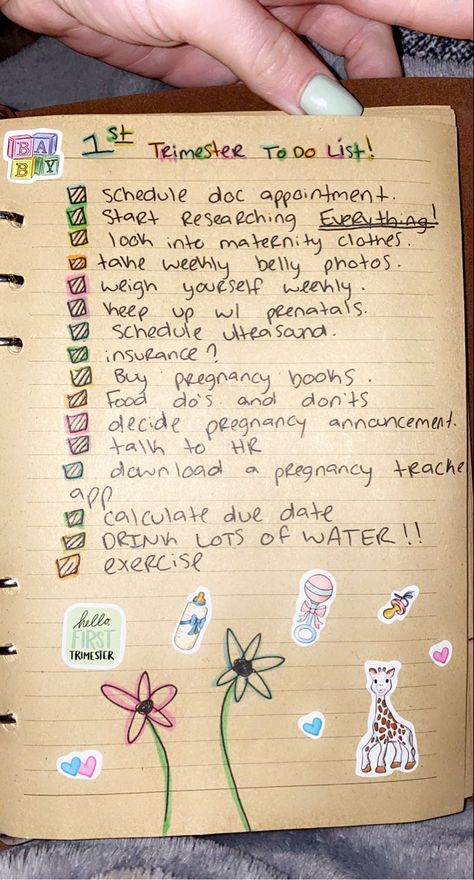 BABY
1st Trimester To Do List!
schedule doc appointment.
Start Researching Everything!
look into maternity clothes.
take weekly belly photos.
weigh yourself weekly.
keep up w/ prenatals.
Schedule ultrasound.
insurance?
Buy pregnancy books.
Food do's and don'ts
decide pregnancy announcement.
talk to HR
download a pregnancy tracke
app
calculate due date
DRINK LOTS OF WATER!!
exercise
hello
FIRST
TRIMESTER